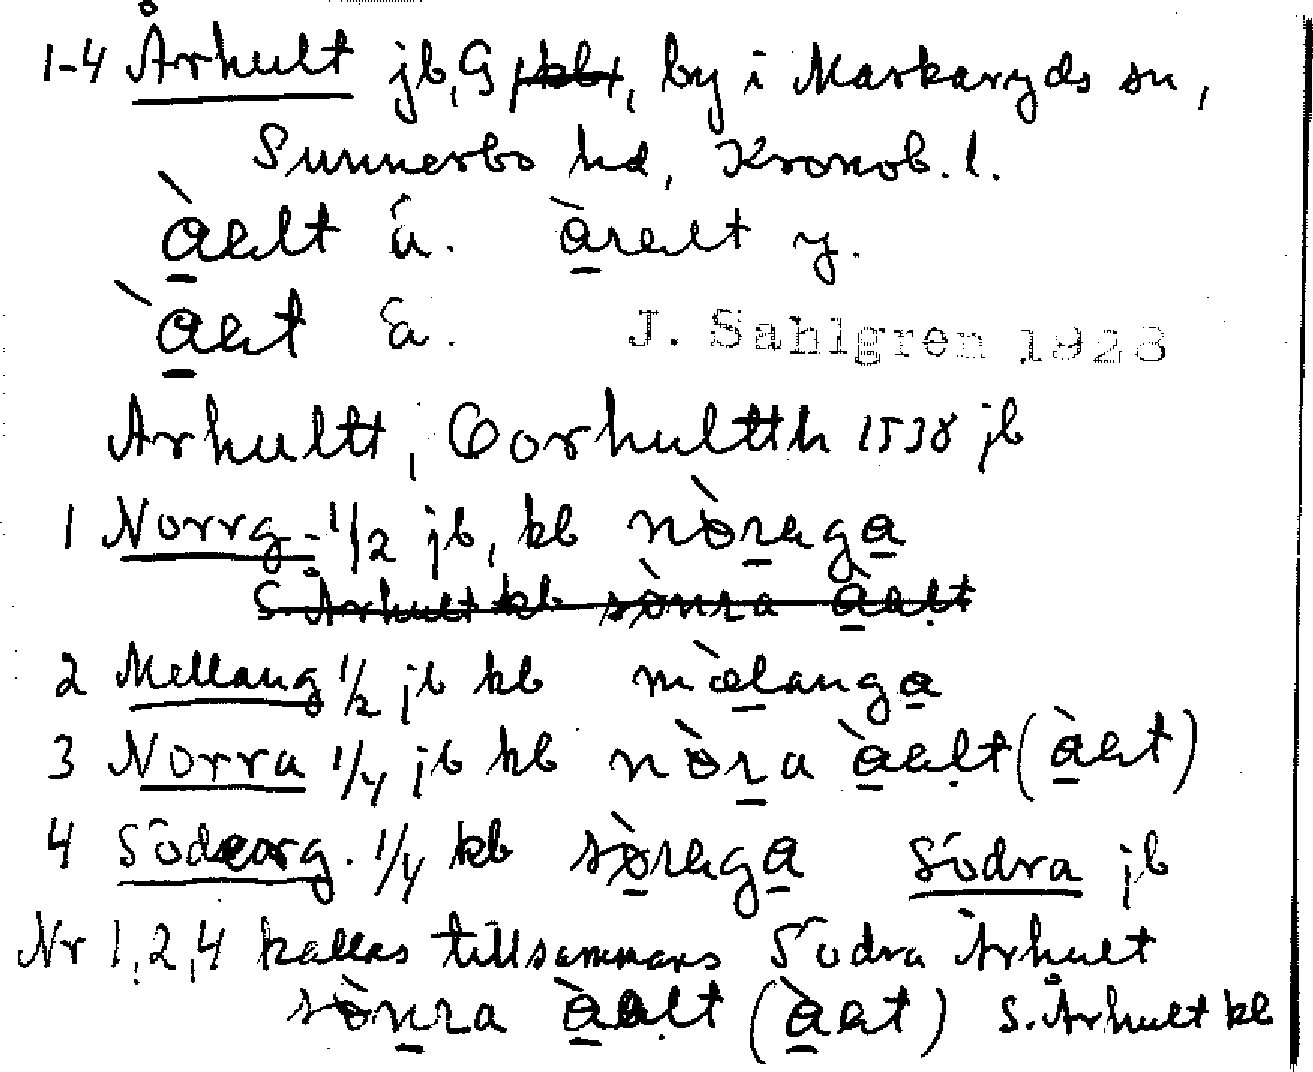 1-4 Århult jb, G, kb, by i Markaryds sn,
Sunnerbo hd, Kronob. l.
àalt ä. àralt y.
àat ä. J. Sahlgren 1928
Arhultt, Oorhultth 1538 jb
1 Norrg. 1/2 jb, kb nòraga
S. Århult kb sònra àalt
2 Mellang 1/2 jb kb mælanga
3 Norra 1/4 jb kb nòra àalt (àat)
4 Söderg. 1/4 kb sòraga Södra jb
Nr 1,2,4 kallas tillsammans Södra Århult
sònra àalt (àat) S. Århult kb